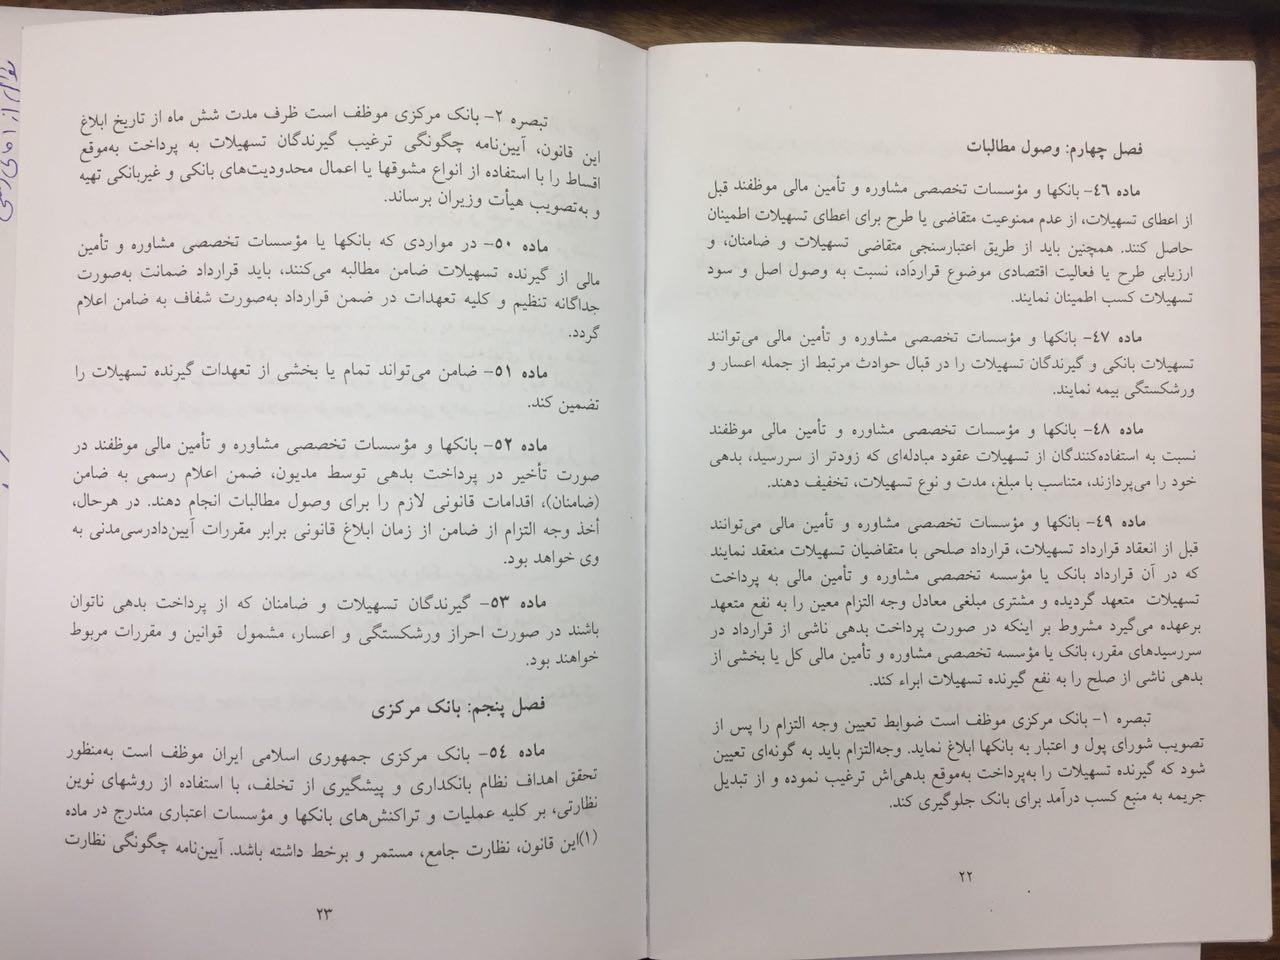 فصل چهارم: وصول مطالبات
ماده ٤٦- بانکها و مؤسسات تخصصی مشاوره و تأمین مالی موظفند قبل
از اعطای تسهیلات، از عدم ممنوعیت متقاضی یا طرح برای اعطای تسهیلات اطمینان
حاصل کنند. همچنین باید از طریق اعتبارسنجی متقاضی تسهیلات و ضامنان، و
ارزیابی طرح یا فعالیت اقتصادی موضوع قرارداد، نسبت به وصول اصل و سود
تسهیلات کسب اطمینان نمایند.
ماده ٤٧- بانکها و مؤسسات تخصصی مشاوره و تأمین مالی می‌توانند
تسهیلات بانکی و گیرندگان تسهیلات را در قبال حوادث مرتبط از جمله اعسار و
ورشکستگی بیمه نمایند.
ماده ٤٨- بانکها و مؤسسات تخصصی مشاوره و تأمین مالی موظفند
نسبت به استفاده‌کنندگان از تسهیلات عقود مبادله‌ای که زودتر از سررسید، بدهی
خود را می‌پردازند، متناسب با مبلغ، مدت و نوع تسهیلات، تخفیف دهند.
ماده ٤٩- بانکها و مؤسسات تخصصی مشاوره و تأمین مالی می‌توانند
قبل از انعقاد قرارداد تسهیلات، قرارداد صلحی با متقاضیان تسهیلات منعقد نمایند
که در آن قرارداد بانک یا مؤسسه تخصصی مشاوره و تأمین مالی به پرداخت
تسهیلات متعهد گردیده و مشتری مبلغی معادل وجه التزام معین را به نفع متعهد
برعهده می‌گیرد مشروط بر اینکه در صورت پرداخت بدهی ناشی از قرارداد در
سررسیدهای مقرر، بانک یا مؤسسه تخصصی مشاوره و تأمین مالی کل یا بخشی از
بدهی ناشی از صلح را به نفع گیرنده تسهیلات ابراء کند.
تبصره ۱- بانک مرکزی موظف است ضوابط تعیین وجه التزام را پس از
تصویب شورای پول و اعتبار به بانکها ابلاغ نماید. وجه‌التزام باید به گونه‌ای تعیین
شود که گیرنده تسهیلات را به‌پرداخت به‌موقع بدهی‌اش ترغیب نموده و از تبدیل
جریمه به منبع کسب درآمد برای بانک جلوگیری کند.
۲۲
تبصره ۲- بانک مرکزی موظف است ظرف مدت شش ماه از تاریخ ابلاغ
این قانون، آیین‌نامه چگونگی ترغیب گیرندگان تسهیلات به پرداخت به‌موقع
اقساط را با استفاده از انواع مشوقها یا اعمال محدودیت‌های بانکی و غیربانکی تهیه
و به‌تصویب هیأت وزیران برساند.
ماده ٥٠- در مواردی که بانکها یا مؤسسات تخصصی مشاوره و تأمین
مالی از گیرنده تسهیلات ضامن مطالبه می‌کنند، باید قرارداد ضمانت به‌صورت
جداگانه تنظیم و کلیه تعهدات در ضمن قرارداد به‌صورت شفاف به ضامن اعلام
گردد.
ماده ٥١- ضامن می‌تواند تمام یا بخشی از تعهدات گیرنده تسهیلات را
تضمین کند.
ماده ٥٢- بانکها و مؤسسات تخصصی مشاوره و تأمین مالی موظفند در
صورت تأخیر در پرداخت بدهی توسط مدیون، ضمن اعلام رسمی به ضامن
(ضامنان)، اقدامات قانونی لازم را برای وصول مطالبات انجام دهند. در هرحال،
أخذ وجه التزام از ضامن از زمان ابلاغ قانونی برابر مقررات آیین‌دادرسی‌مدنی به
وی خواهد بود.
ماده ٥٣- گیرندگان تسهیلات و ضامنان که از پرداخت بدهی ناتوان
باشند در صورت احراز ورشکستگی و اعسار، مشمول قوانین و مقررات مربوط
خواهند بود.
فصل پنجم: بانک مرکزی
ماده ٥٤- بانک مرکزی جمهوری اسلامی ایران موظف است به‌منظور
تحقق اهداف نظام بانکداری و پیشگیری از تخلف، با استفاده از روشهای نوین
نظارتی، بر کلیه عملیات و تراکنش‌های بانکها و مؤسسات اعتباری مندرج در ماده
(۱)این قانون، نظارت جامع، مستمر و برخط داشته باشد. آیین‌نامه چگونگی نظارت
۲۳